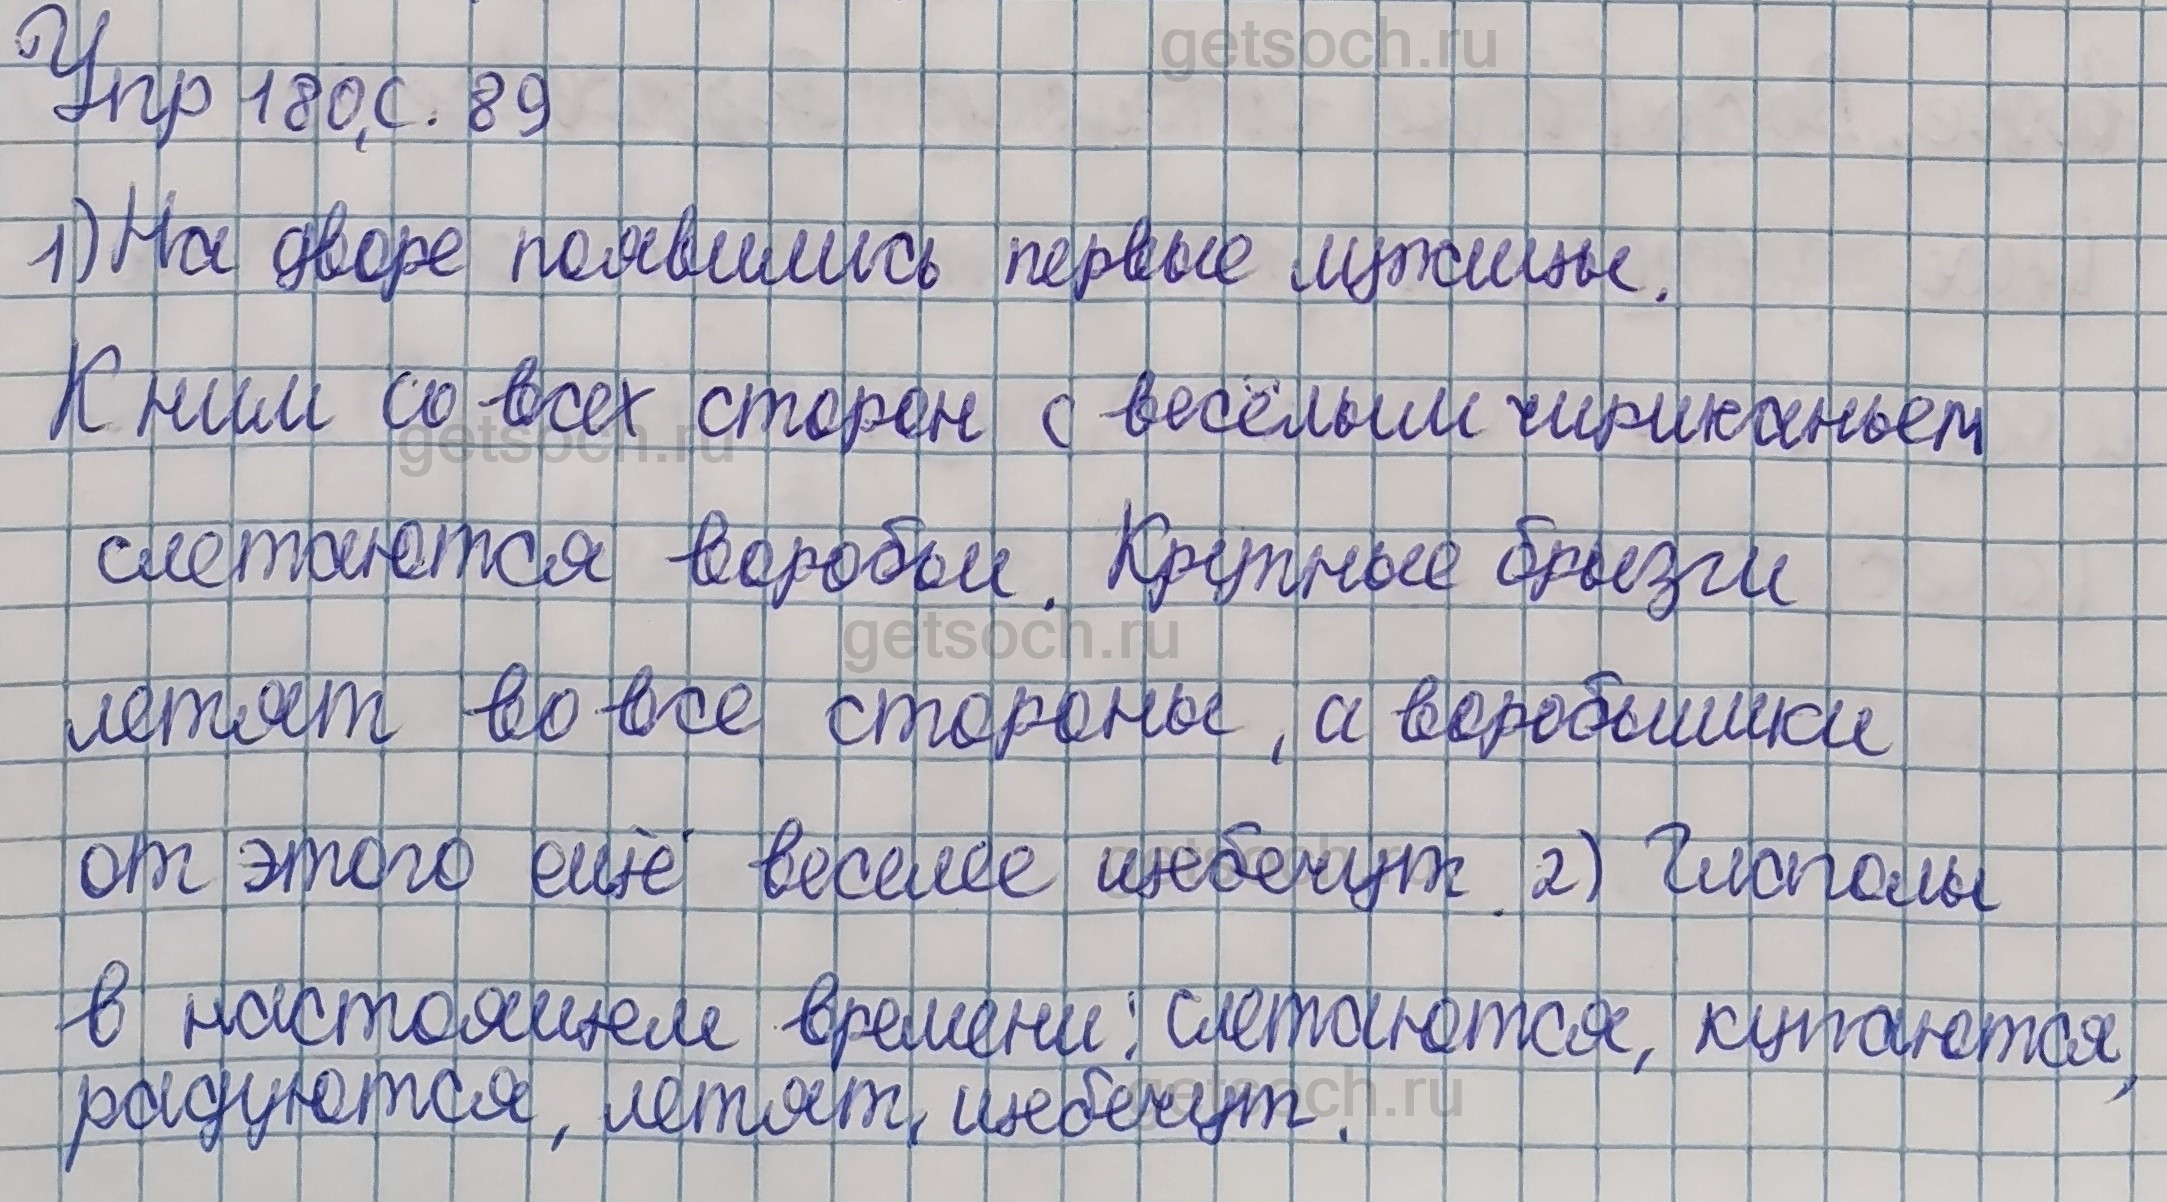 getsoch.ru
Упр 180, с. 89
1) На дворе появились первые лужицы.
К ним со всех сторон с весёлым чириканьем
getsoch.ru
слетаются воробьи. Крупные брызги
getsoch.ru
летят во все стороны, а воробьишки
от этого ещё веселее щебечут. 2) Глаголы
getsoch.ru
в настоящем времени: слетаются, купаются,
радуются, летят, щебечут.
getsoch.ru